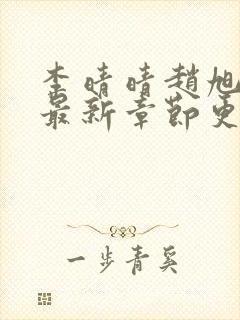 李晴晴趙旭
最新章節更
一步青奚